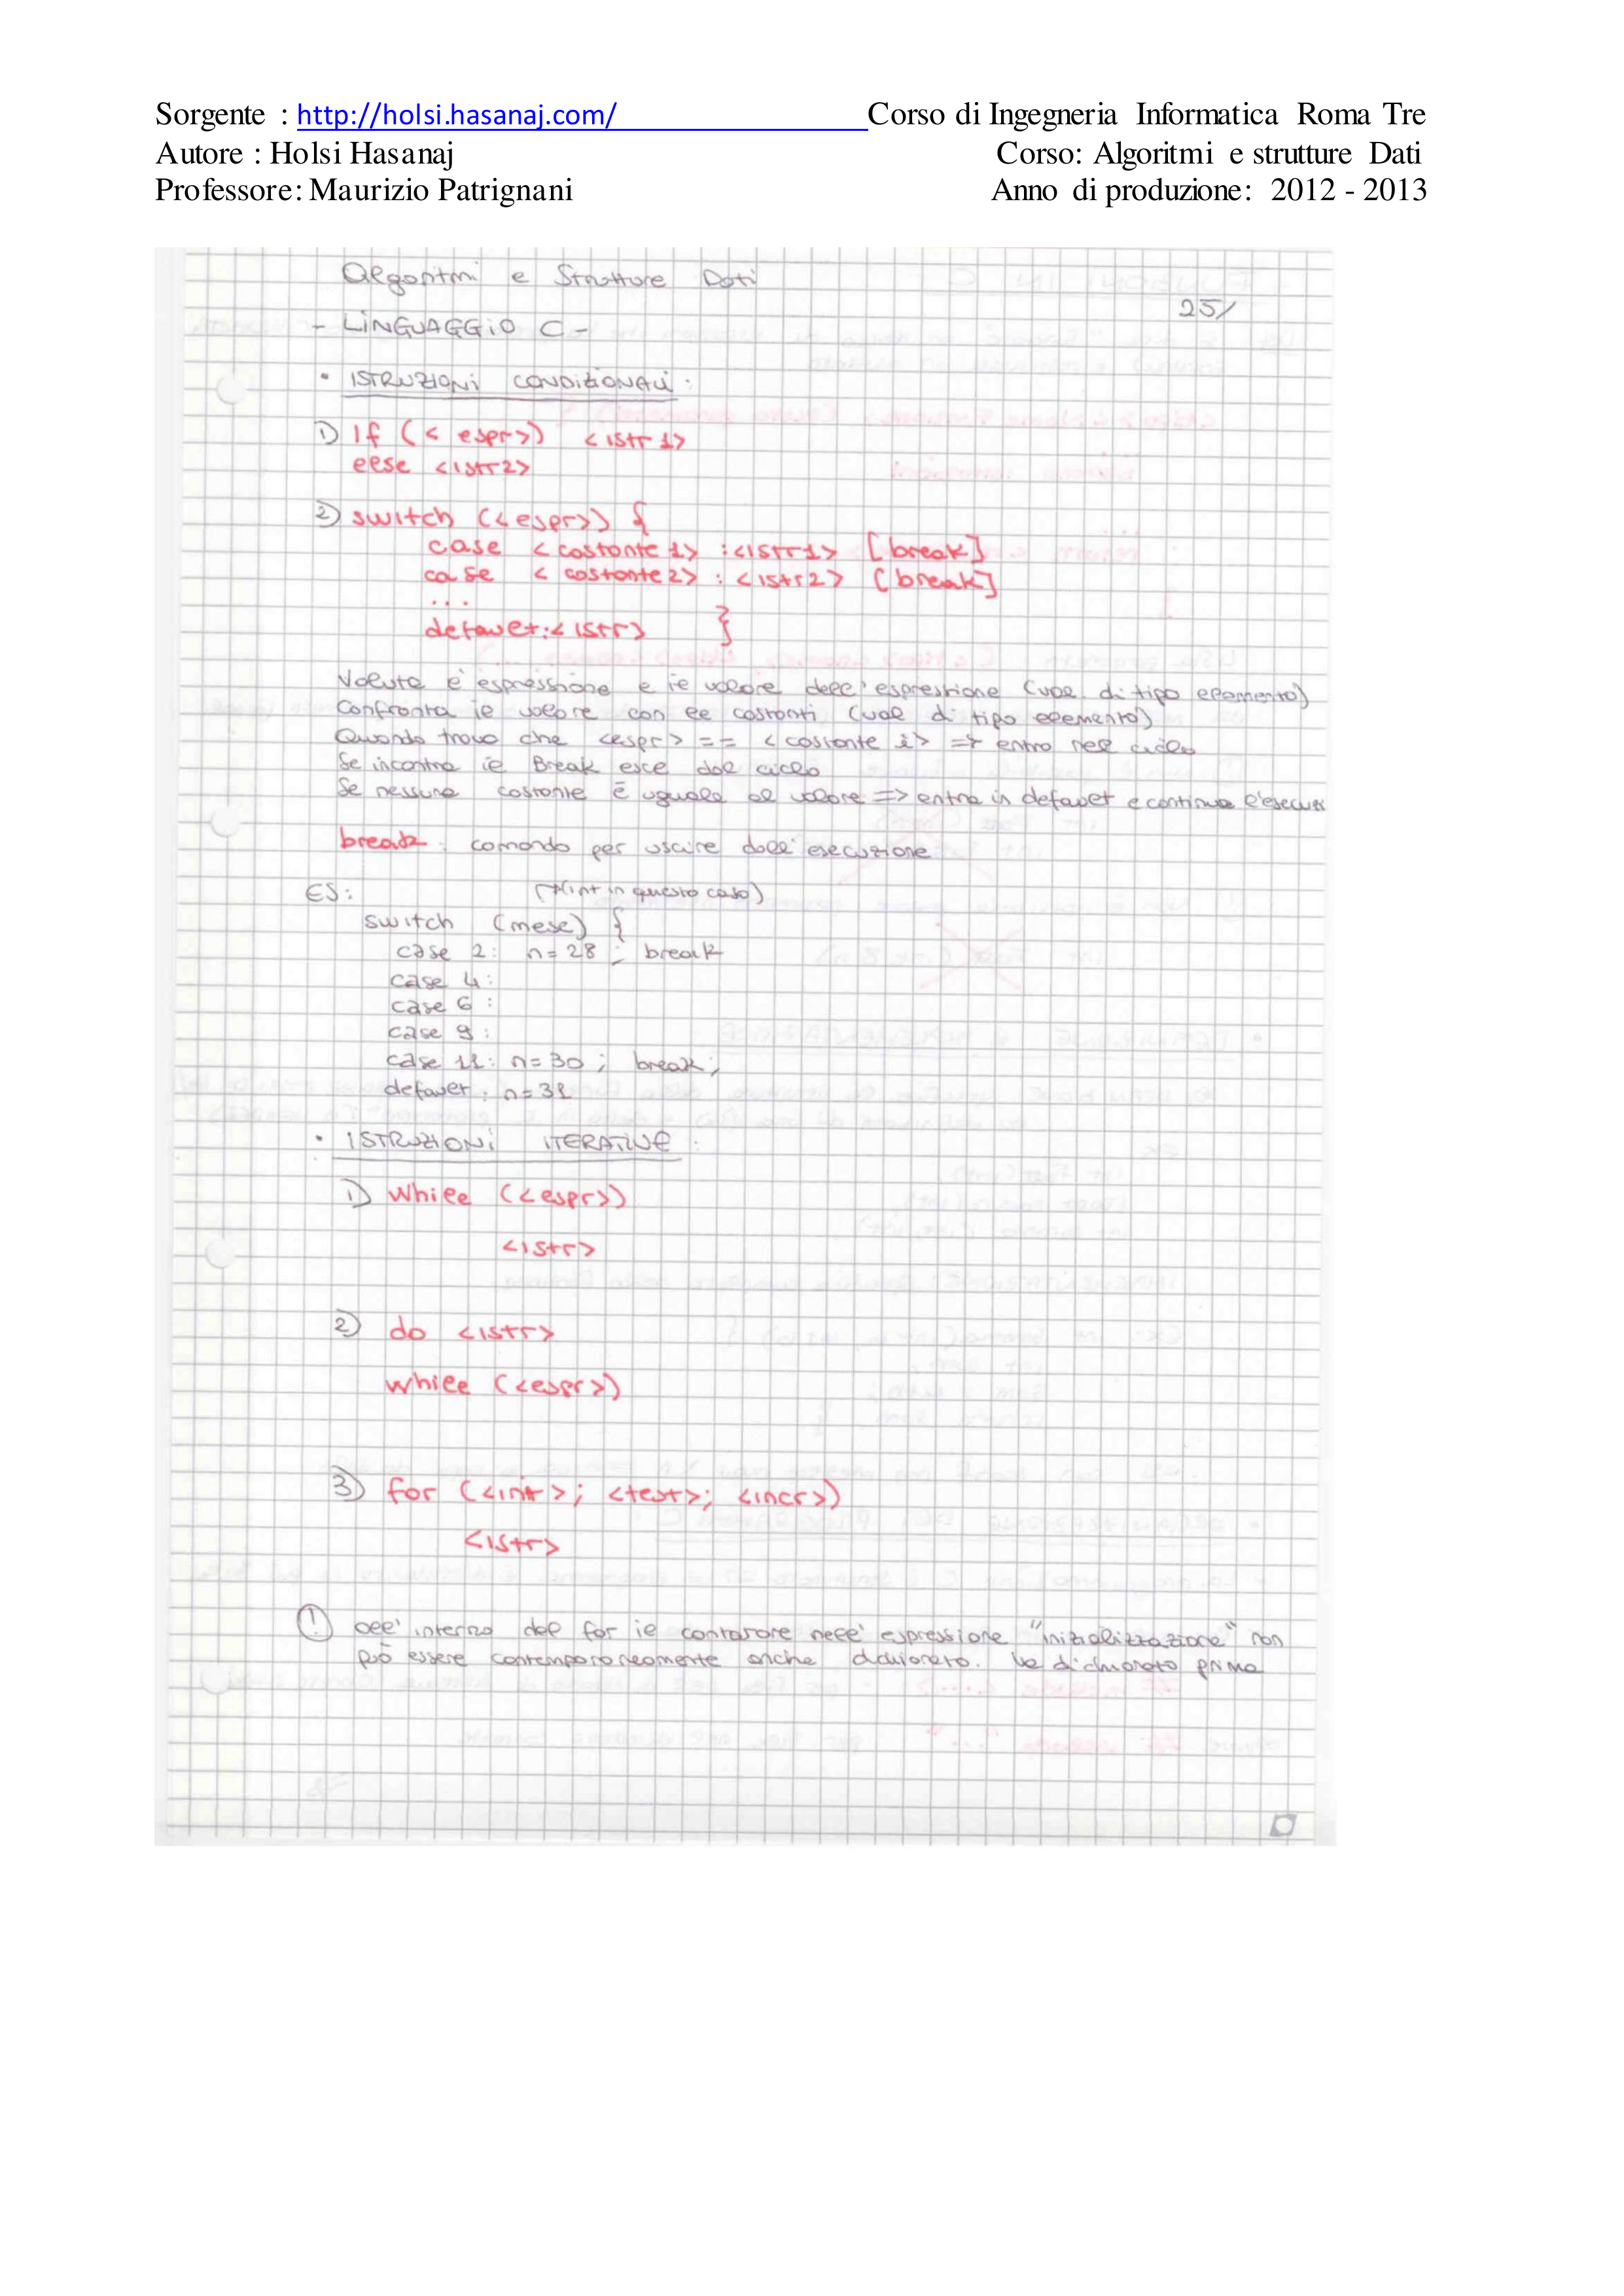 Sorgente : http://holsi.hasanaj.com/ Corso di Ingegneria Informatica Roma Tre
Autore : Holsi Hasanaj Corso: Algoritmi e strutture Dati
Professore: Maurizio Patrignani Anno di produzione: 2012 - 2013
Algoritmi e Strutture Dati
25/
- LINGUAGGIO C -
• ISTRUZIONI CONDIZIONALI:
1) If (< espr>) <istr 1>
else <istr2>
2) switch (<espr>) {
case < costante 1> : <istr1> [break]
case < costante 2> : <istr2> [break]
...
default: <istr> }
Valuta l'espressione e il valore dell'espressione (val. di tipo elemento)
Confronta il valore con le costanti (val di tipo elemento)
Quando trovo che <espr> == <costante i> => entro nel ciclo
Se incontra il Break esce dal ciclo
Se nessuna costante è uguale al valore => entra in default e continua l'esecuzi
break : comando per uscire dall'esecuzione
ES: (int in questo caso)
switch (mese) {
case 2: n=28 ; break
case 4:
case 6 :
case 9 :
case 11: n=30 ; break;
default : n=31
• ISTRUZIONI ITERATIVE :
1) While (<espr>)
<istr>
2) do <istr>
while (<espr>)
3) for (<init>; <test>; <incr>)
<istr>
! all'interno del for il contatore nell'espressione "inizializzazione" non
può essere contemporaneamente anche dichiarato. Va dichiarato prima